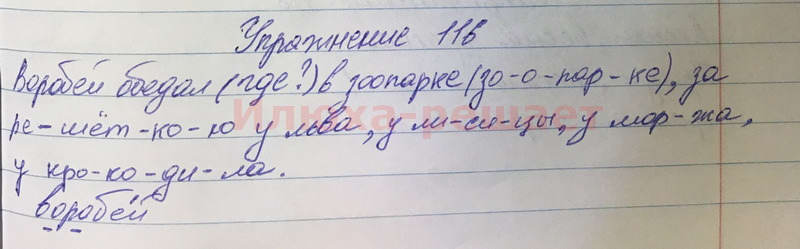 Упражнение 116
Воробей обедал (где?) в зоопарке (зо-о-пар-ке), за
ре-шёт-ко-ю у льва, у ли-си-цы, у мор-жа,
Илюха-решает
у кро-ко-ди-ла.
воробей